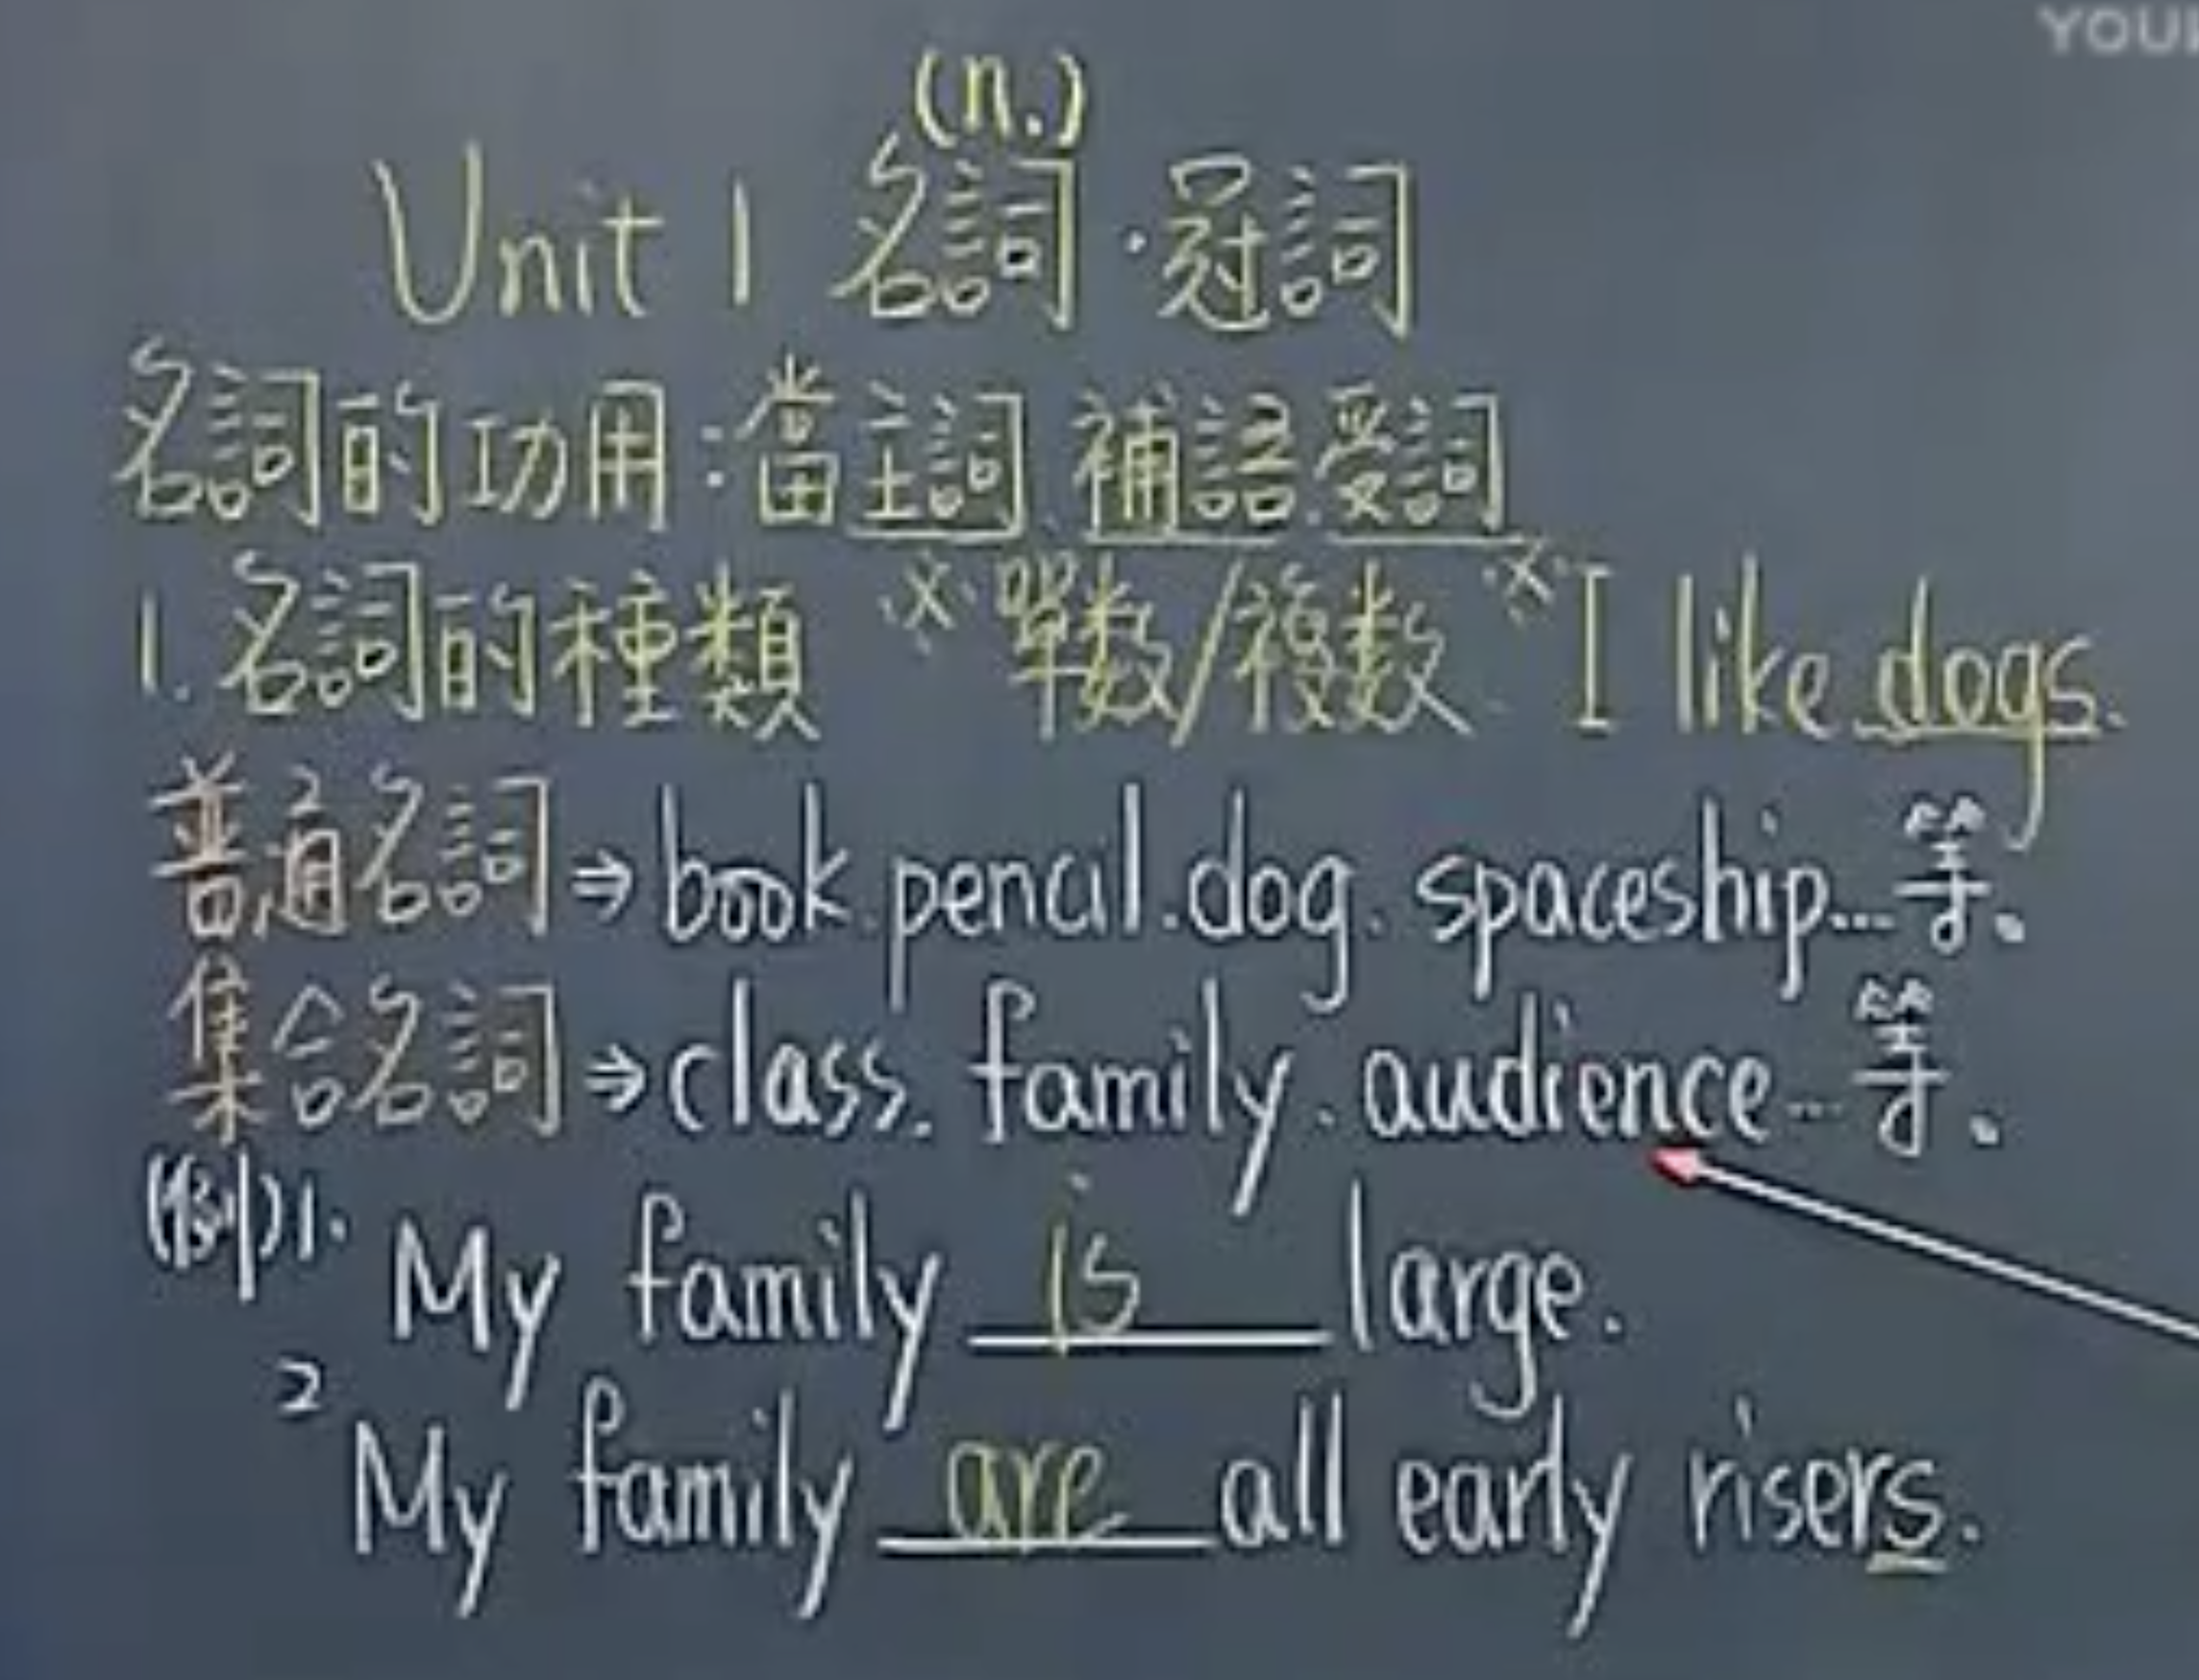 (n.)
Unit 1 名詞·冠詞
名詞的功用:當主詞.補語.受詞
1. 名詞的種類 ※單数/複数 ※I like dogs.
普通名詞⇒book.pencil.dog. spaceship...等。
集合名詞⇒class. family. audience...等。
(例)1. My family is large.
2 My family are all early risers.